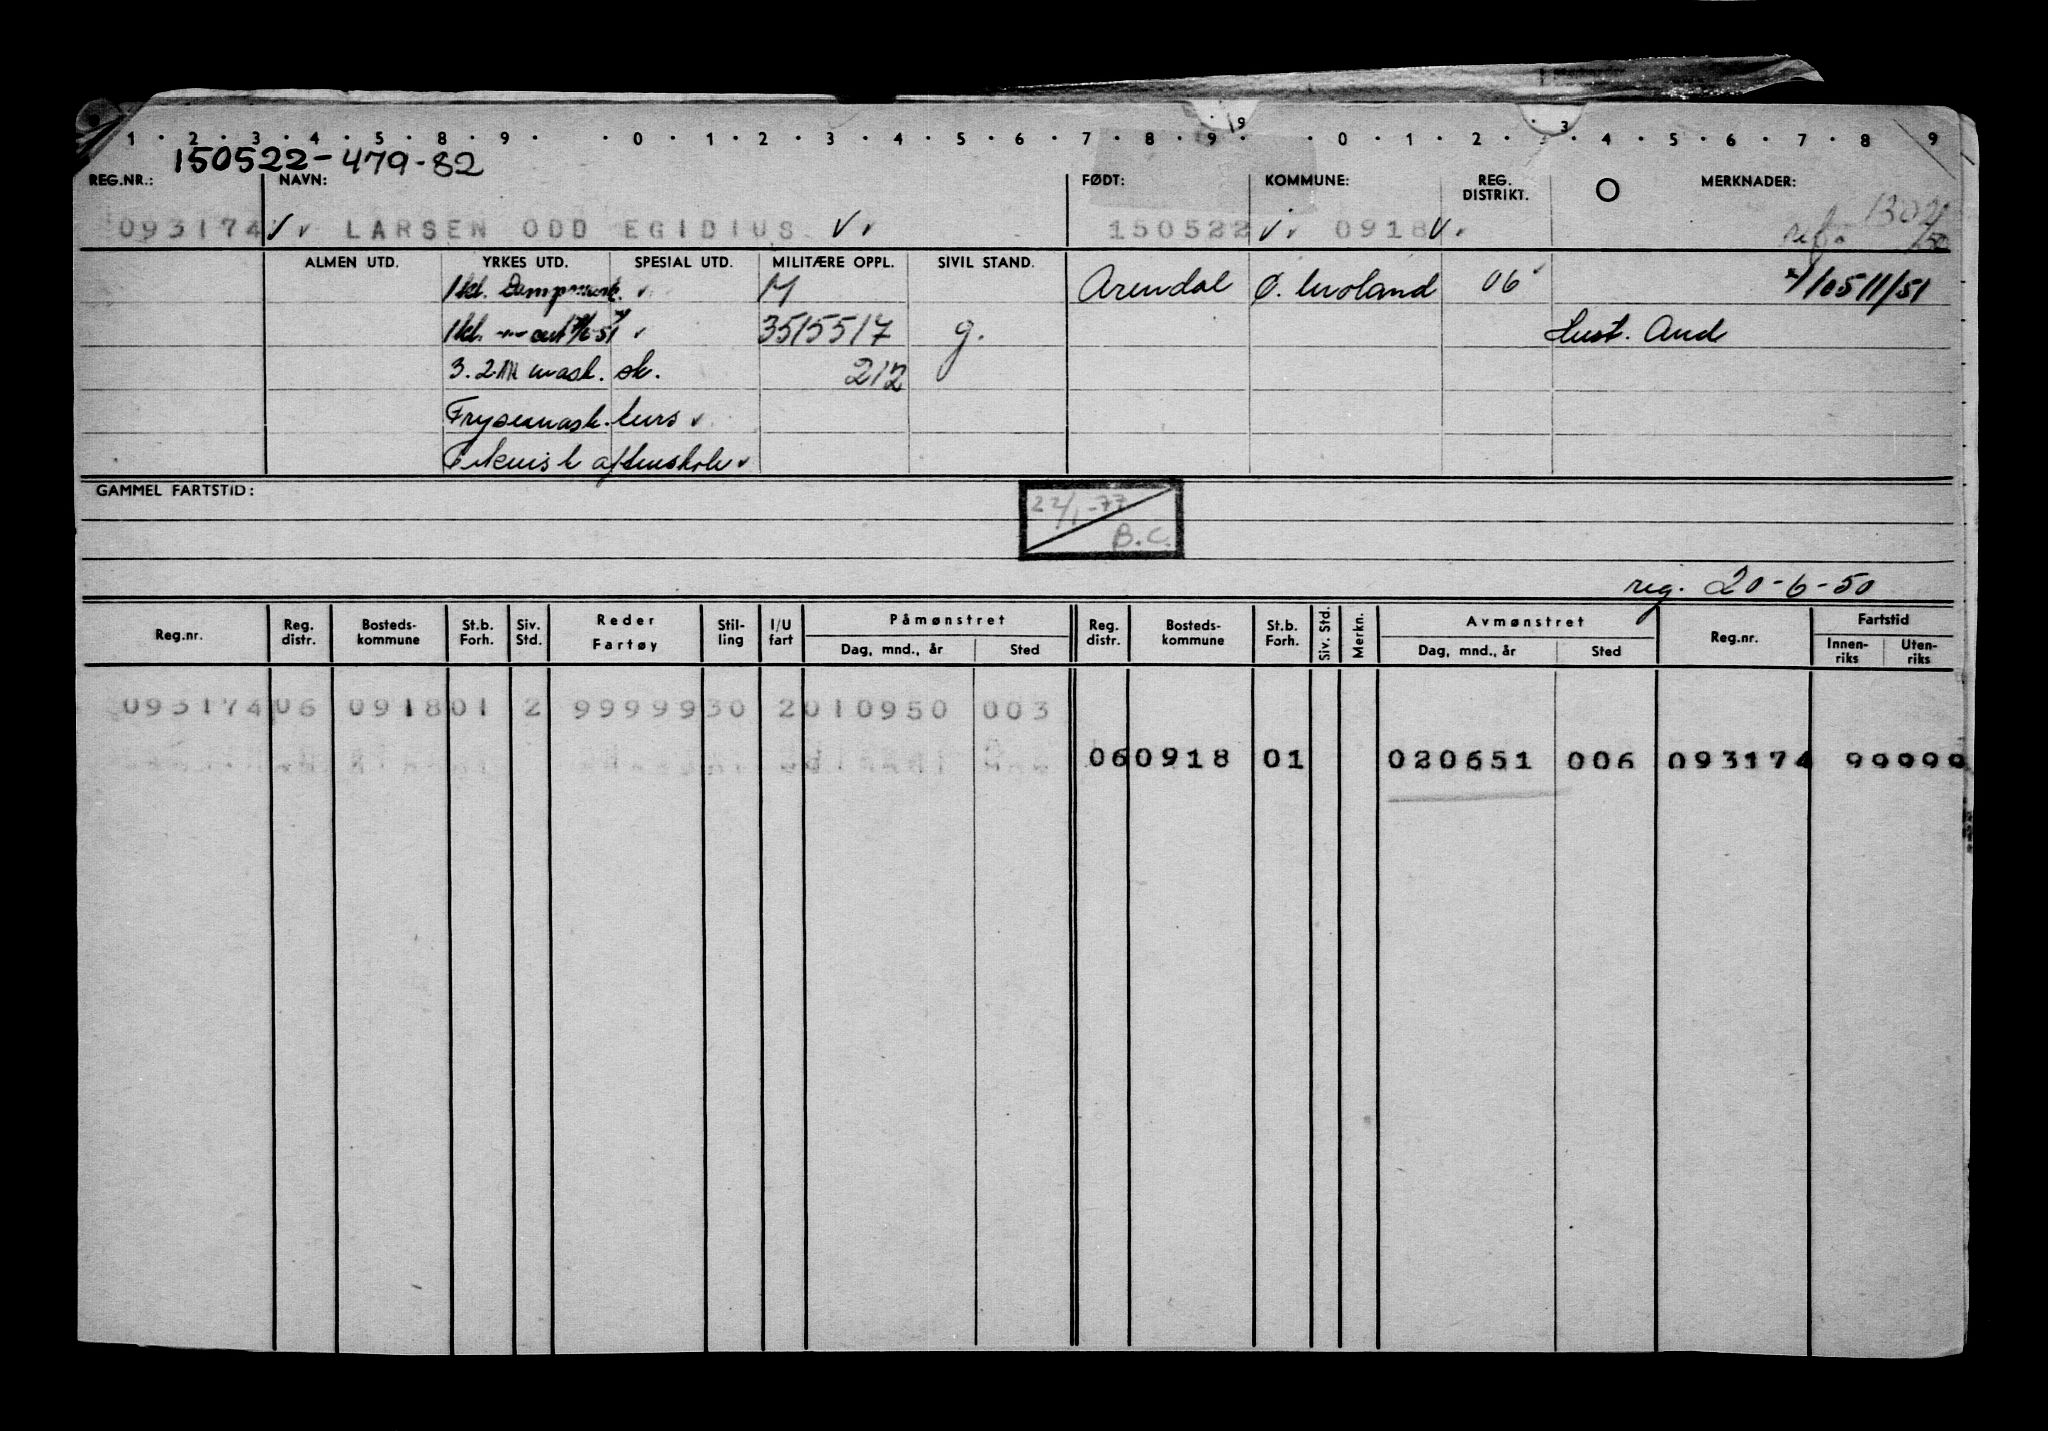 1 · 2 · 3 · 4 · 5 · 8 · 9 · · 0 · 1 · 2 · 3 · 4 · 5 · 6 · 7 · 8 · 9 · · 0 · 1 · 2 · 3 · 4 · 5 · 6 · 7 · 8 · 9
150522-479-82
REG.NR.: NAVN: FØDT: KOMMUNE: REG. DISTRIKT. MERKNADER:
093174 LARSEN ODD EGIDIUS 150522 0918
ref.
ALMEN UTD. YRKES UTD. SPESIAL UTD. MILITÆRE OPPL. SIVIL STAND.
1kl. Dampmask. M Arendal Ø. Moland 06 10511/51
1kl. 3515517 g. Hust. And
3. 2 mask. sk. 212
Frysemask. kurs
Teknisk aftenskole
GAMMEL FARTSTID:
22/1-77
B.C.
reg. 20-6-50
Reg.nr. Reg. distr. Bosteds- kommune St.b. Forh. Siv. Std. Reder Fartøy Stil- ling I/U fart Påmønstret Dag, mnd., år Sted Reg. distr. Bosteds- kommune St.b. Forh. Siv. Std. Merkn. Avmønstret Dag, mnd., år Sted Reg.nr. Fartstid Innen- riks Uten- riks
093174 06 0918 01 2 99999 30 2 010950 003
06 0918 01 020651 006 093174 99999